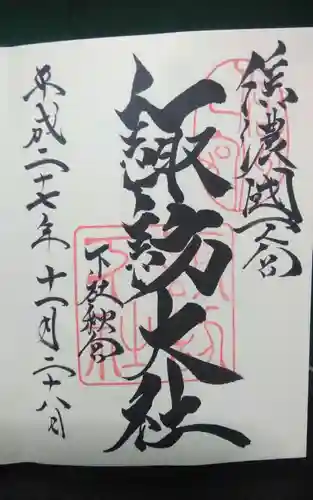 信濃國一之宮
諏訪大社
下社秋宮
平成二十七年十一月二十八月